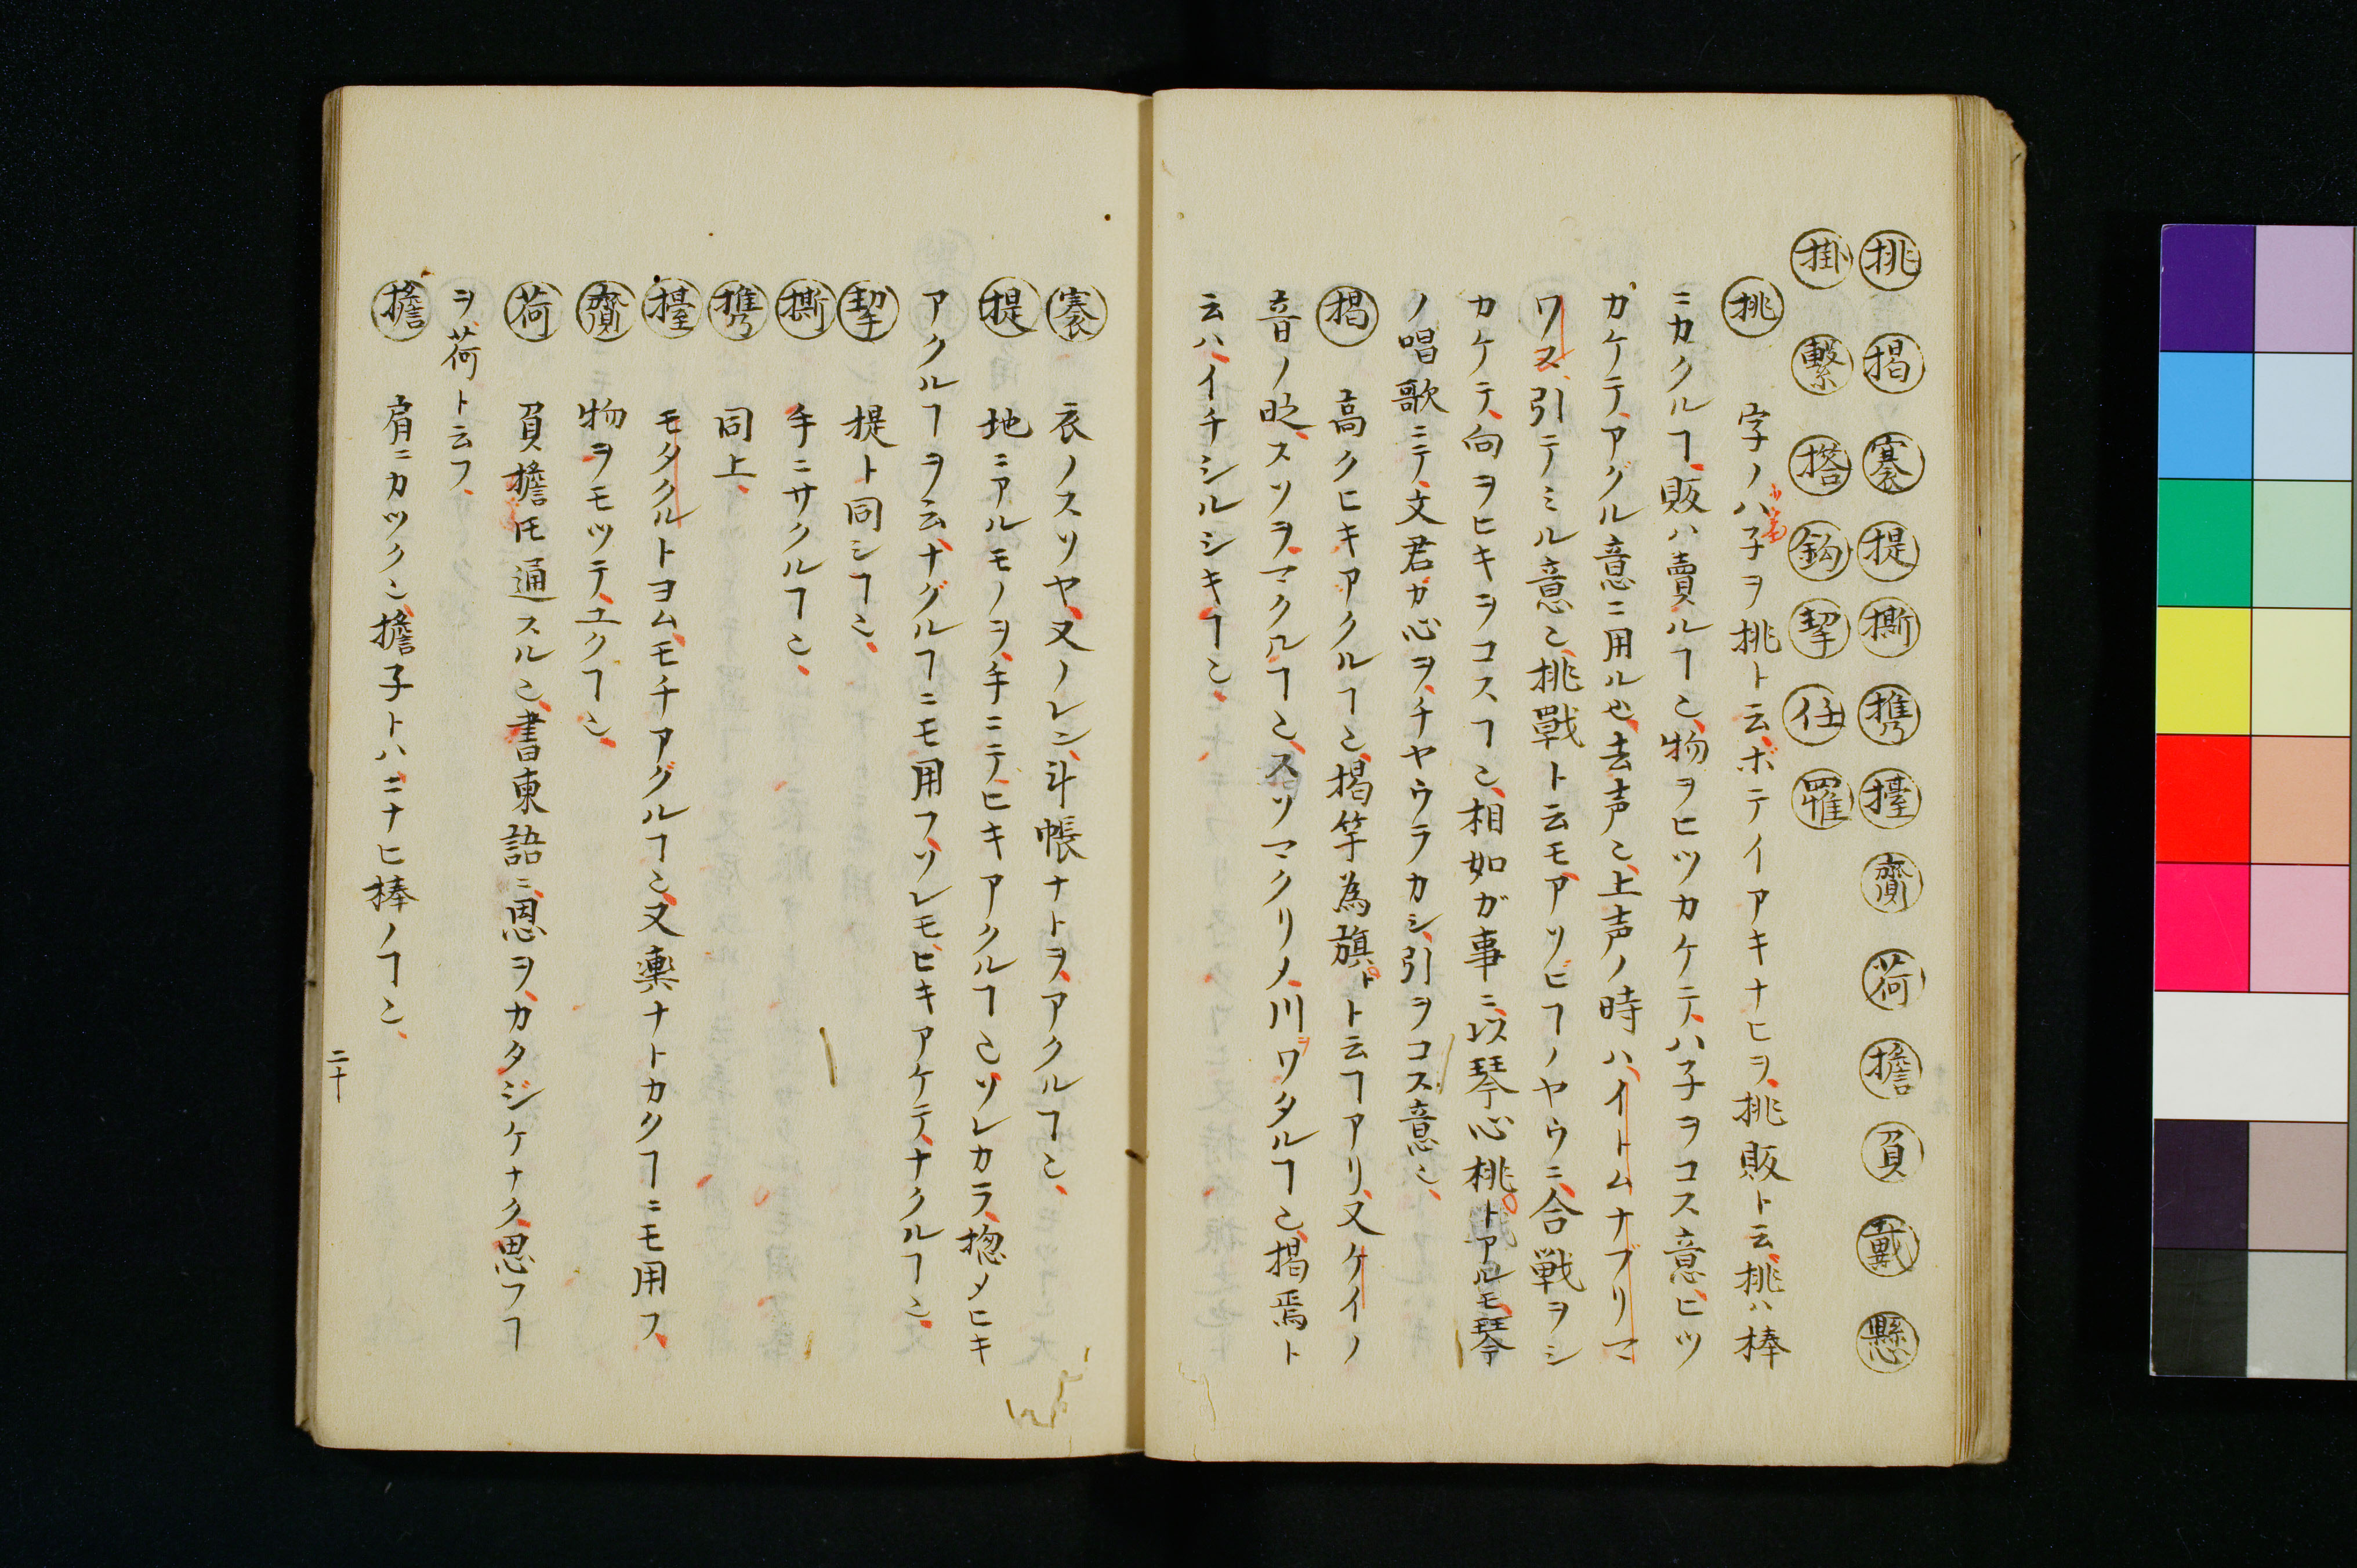 挑 揭 褰 提 撕 携 擡 齎 荷 擔 負 戴 懸
掛 繋 搭 鈎 挈 任 罹
挑 字ノハ子ヲ挑ト云ボテイアキナヒヲ挑販ト云挑ハ棒
ニカクルヿ販ハ賣ルヿ乄物ヲヒツカケテハ子ヲコス意ヒツ
カケテアグル意ニ用ル也去声乄上声ノ時ハイトムナブリマ
ワス引テミル意乄挑戰ト云モアソビヿノヤウニ合戦ヲシ
カケテ向ヲヒキヲコスヿ乄相如ガ事ニ以琴心桃トアルモ琴
ノ唱歌ニテ文君ガ心ヲチヤウラカシ引ヲコス意乄
揭 高クヒキアクルヿ乄揭竿為旗ト云ヿアリ又ケイノ
音ノ時スソヲマクルヿ乄スソマクリメ川ヲワタルヿ乄揭焉ト
云ハイチシルシキヿ乄
褰 衣ノスソヤ又ノレン斗帳ナトヲアクルヿ乄
提 地ニアルモノヲ手ニテヒキアクルヿ乄ソレカラ捴メヒキ
アクルヿヲ云ナグルヿニモ用フソレモヒキアケテナクルヿ乄
挈 提ト同シヿ乄
撕 手ニサクルヿ乄
携 同上
擡 モタクルトヨムモチアグルヿ乄又輿ナトカクヿニモ用フ
齎 物ヲモツテユクヿ乄
荷 負擔圧通スル乄書柬語ニ恩ヲカタジケナク思フヿ
ヲ荷ト云フ
擔 肩ニカツク乄擔子トハニナヒ棒ノヿ乄
二十